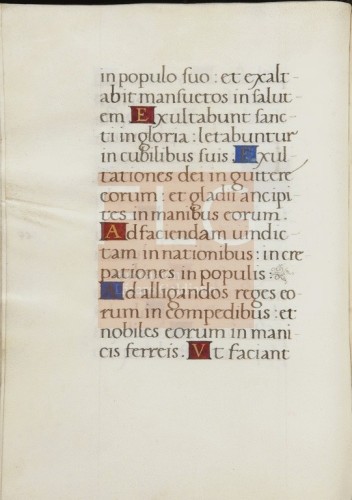 in populo suo : et exalt-
abit mansuetos in salut-
em Exultabunt sanc-
ti in gloria : letabuntur
in cubilibus suis Exul-
tationes dei in guttere
eorum : et gladii ancipi-
tes in manibus eorum .
Ad faciendam uindic-
tam in nationibus : in cre-
pationes in populis :
Ad alligandos reges eo-
rum in compedibus : et
nobiles eorum in mani-
cis ferreis . Ut faciant